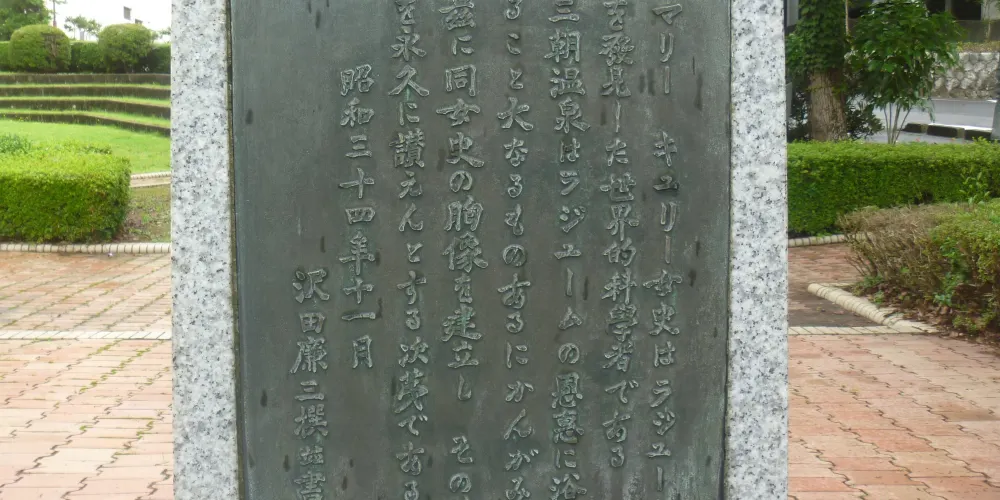 マリー キュリー女史はラジュー
を發見した世界的科學者である
三朝温泉はラジュームの恩惠に浴
ること大なるものあるにかんがみ
茲に同女史の胸像を建立し その
を永久に讃えんとする次第である
昭和三十四年十一月
沢田廉三撰並書